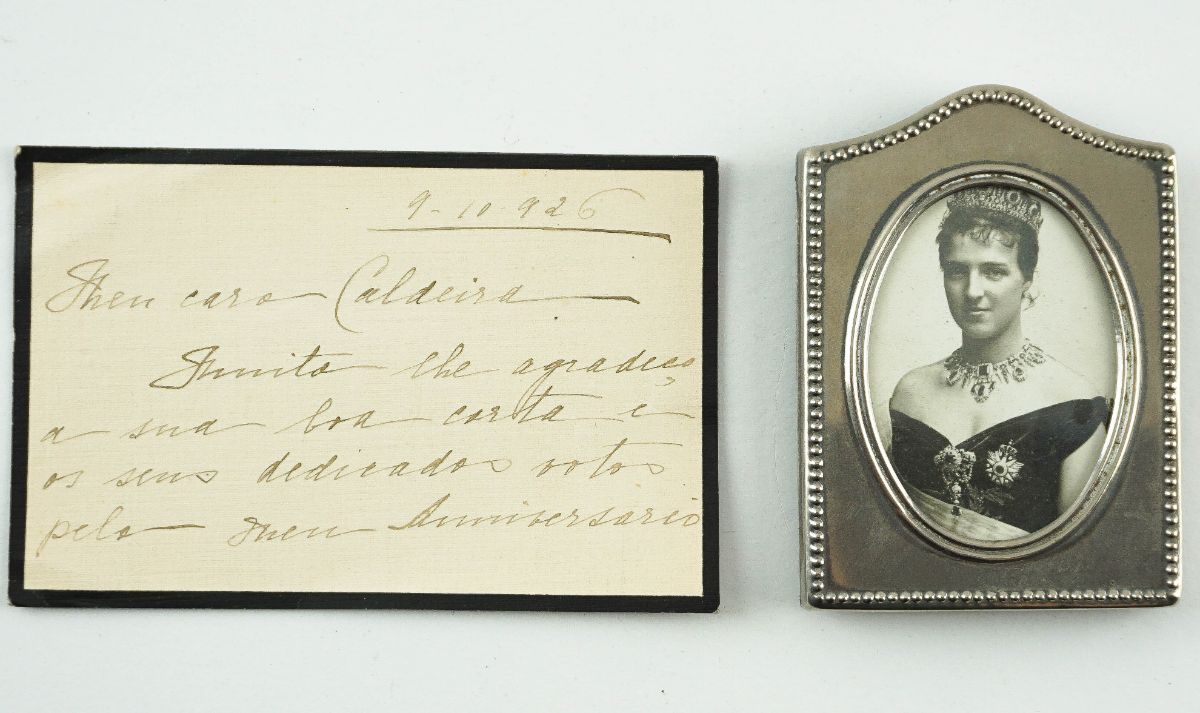 9-10-926
Meu caro Caldeira
Muito lhe agradeço
a sua boa carta e
os seus dedicados votos
pelo meu Anniversario